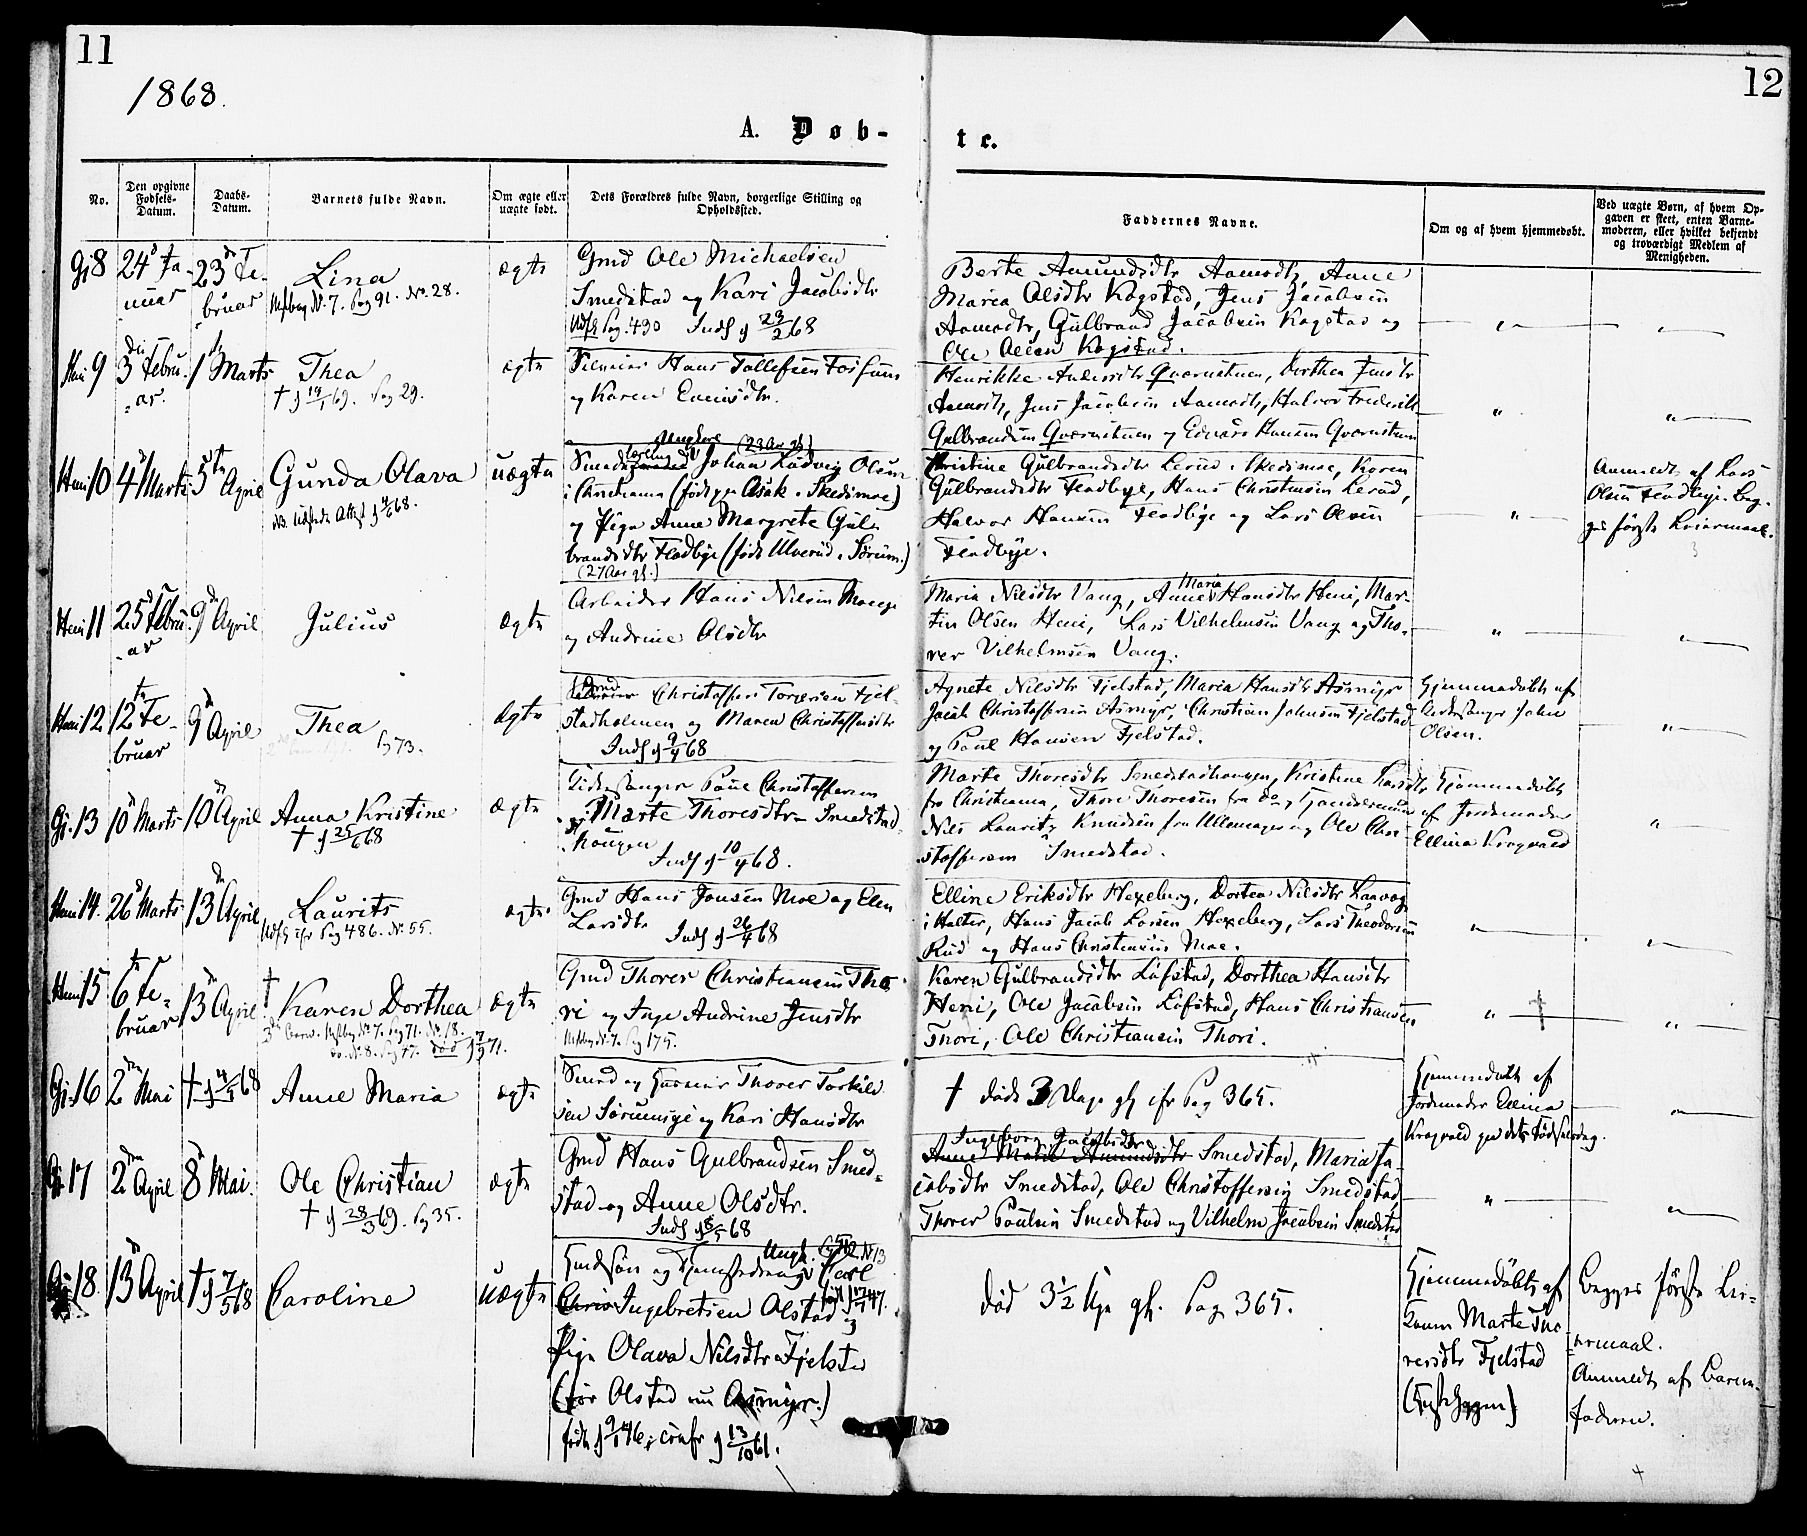 11
12
1868.
A. Døb-
te.
No.
Den opgivne Fødsels-Datum.
Daabs-Datum.
Barnets fulde Navn.
Om ægte eller uægte født.
Dets Forældres fulde Navn, borgerlige Stilling og Opholdssted.
Faddernes Navne.
Om og af hvem hjemmedøbt.
Ved uægte Børn, af hvem Opgaven er skeet, enten Barnemoderen, eller hvilket bekjendt og troværdigt Medlem af Menigheden.
Gj 8
24de Januar
23de Februar
Lina
No. 7. Pag 91. No. 28.
ægte
Gmd Ole Michaelsen
Smedstad og Kari Jacobsdtr
Udfl Pag. 430 Indf 23/2 68
Berte Amundsdtr Aamodt, Anne
Maria Olsdtr Kogstad, Jens Jacobsen
Aamodt, Gulbrand Jacobsen Kogstad og
Ole Olsen Kogstad.
Heni 9
3die Februar.
1de Marts
Thea
† 14/1 69. Pag 29.
ægte
Hans Tollefsen Fosfum
og Karen Evensdtr.
Henrikke Andersdtr Qværnstuen, Dorthea Jensdtr
Aamodt, Jens Jacobsen Aamodt, Halvor Frederik
Gulbrandsen Qværnstuen og Edvard Hansen Qværnstuen
Heni 10
4de Marts
5te April
Gunda Olava
NB. Udstedt Attest 4/6 68.
uægte
Ungkarl (23 Aar gl.)
Johan Ludvig Olsen
i Christiania (født paa Asak i Skedsmoe)
og Pige Anne Margrete Gul-
brandsdtr Fladbye (født Ulverud i Sørum.)
(27 Aar gl.)
Christine Gulbrandsdtr Lerud i Skedsmoe, Karen
Gulbrandsdtr Fladbye, Hans Christensen Lerud,
Halvor Hansen Fladbye og Lars Olsen
Fladbye.
Anmeldt af Lars
Olsen Fladbye. Beg-
ges første Leiermaal.
Heni 11
25de Februar
9de April
Julius
ægte
Arbeider Hans Nilsen Mauge
og Andrine Olsdtr
Maria Nilsdtr Vang, Anne Maria Hansdtr Heni, Mar-
tin Olsen Heni, Lars Vilhelmsen Vang og Tho-
rer Vilhelmsen Vang.
Heni 12
12te Februar
9de April
Thea
Pg 73.
ægte
Christoffer Torgersen Fjel-
stadholmen og Maren Christoffersdtr
Indf 9/4 68
Agnete Nilsdtr Fjelstad, Maria Hansdtr Asmyr
Jacob Christoffersen Asmyr, Christian Johnsen Fjelstad
og Paul Hansen Fjelstad.
Hjemmedøbt af
Kirkesanger John
Olsen.
Gj. 13
10de Marts
10de April
Anna Kristine
† 25/6 68
ægte
Paul Christoffersen
og Marte Thoresdtr Smedstad-
haugen
Indf 10/4 68.
Marte Thoresdtr Smedstadhaugen, Kristine Larsdtr
fra Christiania, Thore Thoresen fra do,
Nils Lauritz Knudsen fra Ullensager og Ole Chri-
stoffersen Smedstad.
Hjemmedøbt
af Jordemoder
Ellina Kragvald
Heni 14.
26de Marts
13de April
Laurits
Udfl cfr Pag 486. No. 55.
ægte
Gmd Hans Jonsen Moe og Elen
Larsdtr
Indf 26/4 68
Elline Eriksdtr Hexeberg, Dortea Nilsdtr
i Holter, Hans Jacob Larsen Hexeberg, Lars Theodorsen
Rud og Hans Christensen Moe.
Heni 15
6te Februar
13de April
† Karen Dorthea
No. 7. Pag 71. No. 18.
død 71.
ægte
Gmd Thorer Christiansen Tho-
ri og Inge Andrine Jensdtr
No. 7. Pag 175.
Karen Gulbrandsdtr Løfstad, Dorthea Hansdtr
Heni, Ole Jacobsen Løfstad, Hans Christiansen
Thori, Ole Christiansen Thori.
Gj. 16
2den Mai
† 4/5 68
Anne Maria
ægte
Smed og Thorer Torkild-
sen Sørumsige og Kari Hansdtr
† døde 3 Dage gl cfr Pag 365.
Hjemmedøbt af
Jordemoder Ellina
Kragvald paa dets Fødselsdag.
Gj. 17
2den April
8de Mai.
Ole Christian
† 28/3 69. Pag 35.
ægte
Gmd Hans Gulbrandsen Smed-
stad og Anne Olsdtr.
Indf 8/5 68
Ingeborg Jacobsdtr
Anne Marie Amundsdtr Smedstad, Maria Ja-
cobsdtr Smedstad, Ole Christoffersen Smedstad
Thorer Paulsen Smedstad og Vilhelm Jacobsen Smedstad
Gj 18.
13de April
† 7/5 68
Caroline
uægte
Carl
Ingebretsen Olstad og
Pige Olava Nilsdtr Fjelstad
(før Olstad nu Asmyr.)
født 9/1 46, confr 13/10 61.
Død 3½ Uge gl. Pag 365.
Hjemmedøbt af
Marte Tho-
rersdtr Fjelstad
Begges første Lei-
ermaal.
Anmeldt af Barne-
faderen.